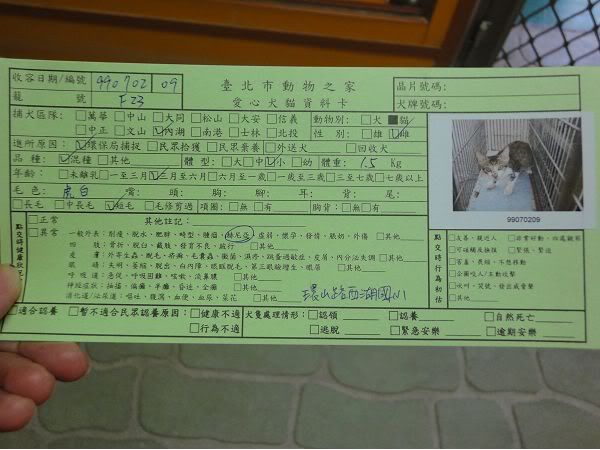 收容日期/編號 990702 09 臺北市動物之家 晶片號碼:
籠 號 F23 愛心犬貓資料卡 犬牌號碼:
捕犬區隊: □萬華 □中山 □大同 □松山 □大安 □信義 動物別: □犬 ■貓
□中正 □文山 ☑內湖 □南港 □士林 □北投 性 別: □雄 ☑雌
進所原因: ☑環保局捕捉 □民眾拾獲 □民眾棄養 □外送犬 □回收犬
品 種: ☑混種 □其他 體 型: □大 □中 ☑小 □幼 體重: 1.5 Kg
年齡: □未離乳 □一至三月 ☑三至六月 □六月至一歲 □一歲至三歲 □三至七歲 □七歲以上
毛 色: 虎白 嘴: 頭: 胸: 腳: 耳: 背: 尾:
□長毛 □中長毛 ☑短毛 □毛修剪過 項圈: □無 □有 胸背: □無 □有
99070209
點交時健康狀況 □正常 其他註記:
□異常 一般外表: 削瘦、脫水、肥胖、畸型、腫瘤、赫尼亞、虛弱、懷孕、發情、脹奶、外傷 □其他
四 肢: 骨折、脫臼、截肢、發育不良、跛行 □其他
皮 膚: 外寄生蟲、脫毛、疥癬、毛囊蟲、黴菌、濕疹、跳蚤過敏症、皮屑、內分泌失調 □其他
眼 睛: 失明、萎縮、脫出、白內障、眼瞼脫毛、第三眼瞼增生、眼屎 □其他
呼 吸 道: 急促、呼吸困難、咳嗽、流鼻膿 □其他
神經症狀: 抽搐、偏癱、半癱、昏迷、全癱 □其他
消化道/泌尿道: 嘔吐、腹瀉、血便、血尿、菜花 □其他
環山路西湖國小
點交時行為初估
□友善、親近人 □非常好動、四處観察
□可碰觸及抽拉 □緊張、緊迫
□害羞、畏縮、不想移動
□企圖咬人/主動攻擊
□吠叫、哭號、發出威脅聲
□其他
□適合認養 □暫不適合民眾認養原因: □健康不適 犬隻處理情形: □認領 □認養 □自然死亡
□行為不適 □逃脫 □緊急安樂 □逾期安樂